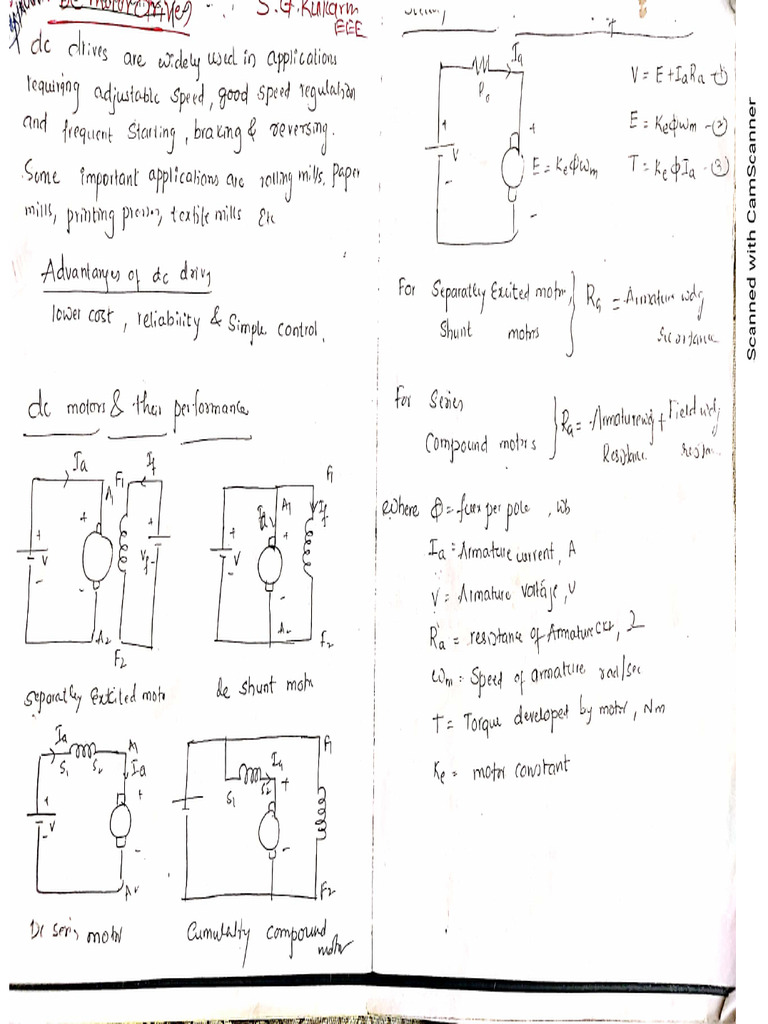 DC MOTOR DRIVES
S.G.Kulkarni
EEE
dc drives are widely used in applications
requiring adjustable speed, good speed regulation
and frequent starting, braking & reversing.
Some important applications are rolling mills, paper
mills, printing presses, textile mills Etc
Advantages of dc drives
lower cost, reliability & simple control.
dc motors & their performance
Ia
A1
F1
If
+
V
-
+
-
+
Vf
-
A2
F2
Separatly Excited motor
F1
A1
If
Ia
+
V
-
+
-
A2
F2
dc shunt motor
Ia
S1
S2
A1
Ia
+
V
-
+
-
A2
DC series motor
F1
Ia
S1
S2
+
-
F2
Cumulatly compound
motor
Ia
Ra
+
V
-
+
E = KeΦωm
-
V = E + IaRa -①
E = KeΦωm -②
T = KeΦIa -③
For Separatly Excited motor,
Shunt motors
Ra = Armature wdg
For Series
Compound motors
Ra = Armature wdg + Field wdg
Resistance
Where Φ = flux per pole, wb
Ia = Armature current, A
V = Armature voltage, V
Ra = resistance of Armature ckt, Ω
ωm = Speed of armature rad/sec
T = Torque developed by motor, Nm
Ke = motor constant
Scanned with CamScanner